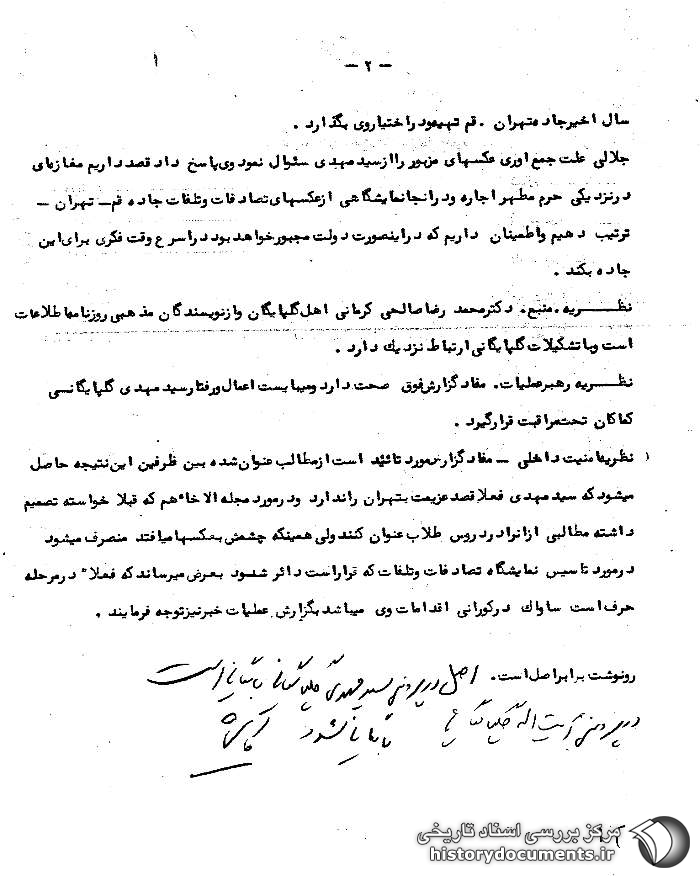 - ۲ -
۱
سال اخیرجاده تهران . قم تهیه ودراختیاروی بگذارد .
جلالی علت جمع اوری عکسهای مزبور راازسیدمهدی سئوال نمودوی پاسخ داد قصد داریم مغازه‌ای
درنزدیکی حرم مطهر اجاره ودرانجانمایشگاهی ازعکسهای تصادفات وتلفات جاده قم - تهران -
ترتیب دهیم واطمینان داریم که دراینصورت دولت مجبورخواهدبود دراسرع وقت فکری برای این
جاده بکند .
نظـــریه . منبع . دکترمحمد رضاصالحی کرمانی اهل گلپایگان وازنویسندگان مذهبی روزنامه اطلاعات
است وباتشکیلات گلپایگانی ارتباط نزدیك دارد .
نظـــریه رهبرعملیات . مفادگزارش فوق صحت دارد ومیبایست اعمال ورفتارسیدمهدی گلپایگانـــی
کماکان تحت مراقبت قرارگیرد .
۱ نظریه امنیت داخلی - مفادگزارش مورد تائید است ازمطالب عنوان شده بین طرفین این نتیجه حاصل
میشودکه سیدمهدی فعلا قصدعزیمت بتهران راندارد ودرمورد مجله الاخاء هم که قبلا خواسته تصمیم
داشته مطالبی ازانرادردروس طلاب عنوان کندولی همینکه چشمش بعکسهامیافتد منصرف میشود
درمورد تاسیس نمایشگاه تصادفات وتلفات که قراراست دائر شـود بعرض میرساندکه فعلاً درمرحله
حرف است ساواك درکورانی اقدامات وی میباشد بگزارش عملیات خبرنیزتوجه فرمایند .
رونوشت برابراصل است . اصل در پرونده سیدمهدی گلپایگانی بایگانی است
در پرونده آیت اله گلپایگانی بایگانی شود
مرکز بررسی اسناد تاریخی
historydocuments.ir